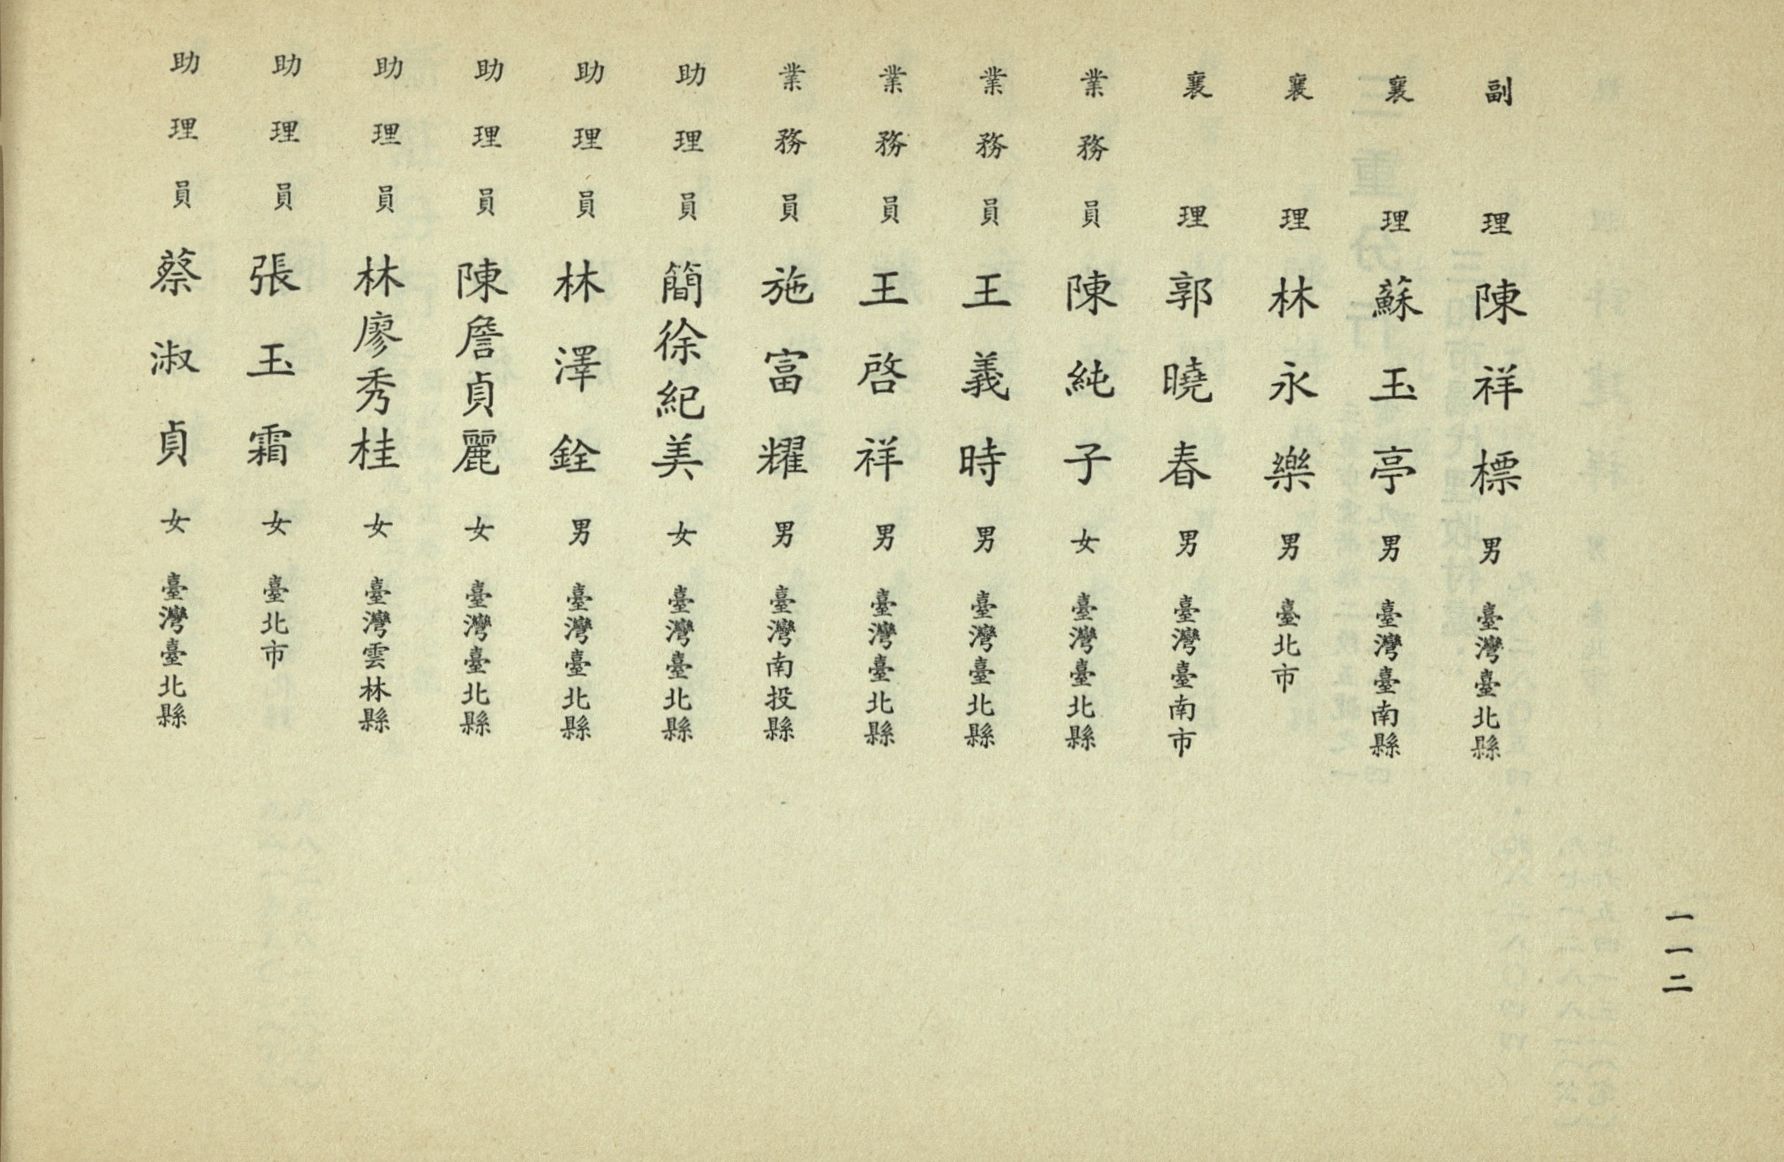 副理陳祥標男臺灣臺北縣
襄理蘇玉亭男臺灣臺南縣
襄理林永樂男臺北市
襄理郭曉春男臺灣臺南市
業務員陳純子女臺灣臺北縣
業務員王義時男臺灣臺北縣
業務員王啓祥男臺灣臺北縣
業務員施富耀男臺灣南投縣
助理員簡徐紀美女臺灣臺北縣
助理員林澤銓男臺灣臺北縣
助理員陳詹貞麗女臺灣臺北縣
助理員林廖秀桂女臺灣雲林縣
助理員張玉霜女臺北市
助理員蔡淑貞女臺灣臺北縣
一一二